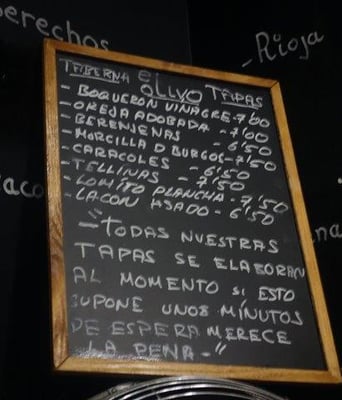 erechos
- Rioja
TABERNA El OLIVO TAPAS
- BOQUERON VINAGRE - 7'00
- OREJA ADOBADA - 7'00
- BERENJENAS - 6'50
- MORCILLA D BURGOS - 7'50
- CARACOLES - 6'50
- TELLINAS - 7'50
- LOMITO PLANCHA - 7'50
- LACON ASADO - 6'50
"- TODAS NUESTRAS
TAPAS SE ELABORAN
AL MOMENTO SI ESTO
SUPONE UNOS MÍNUTOS
DE ESPERA MERECE
LA PENA -"
aco
na